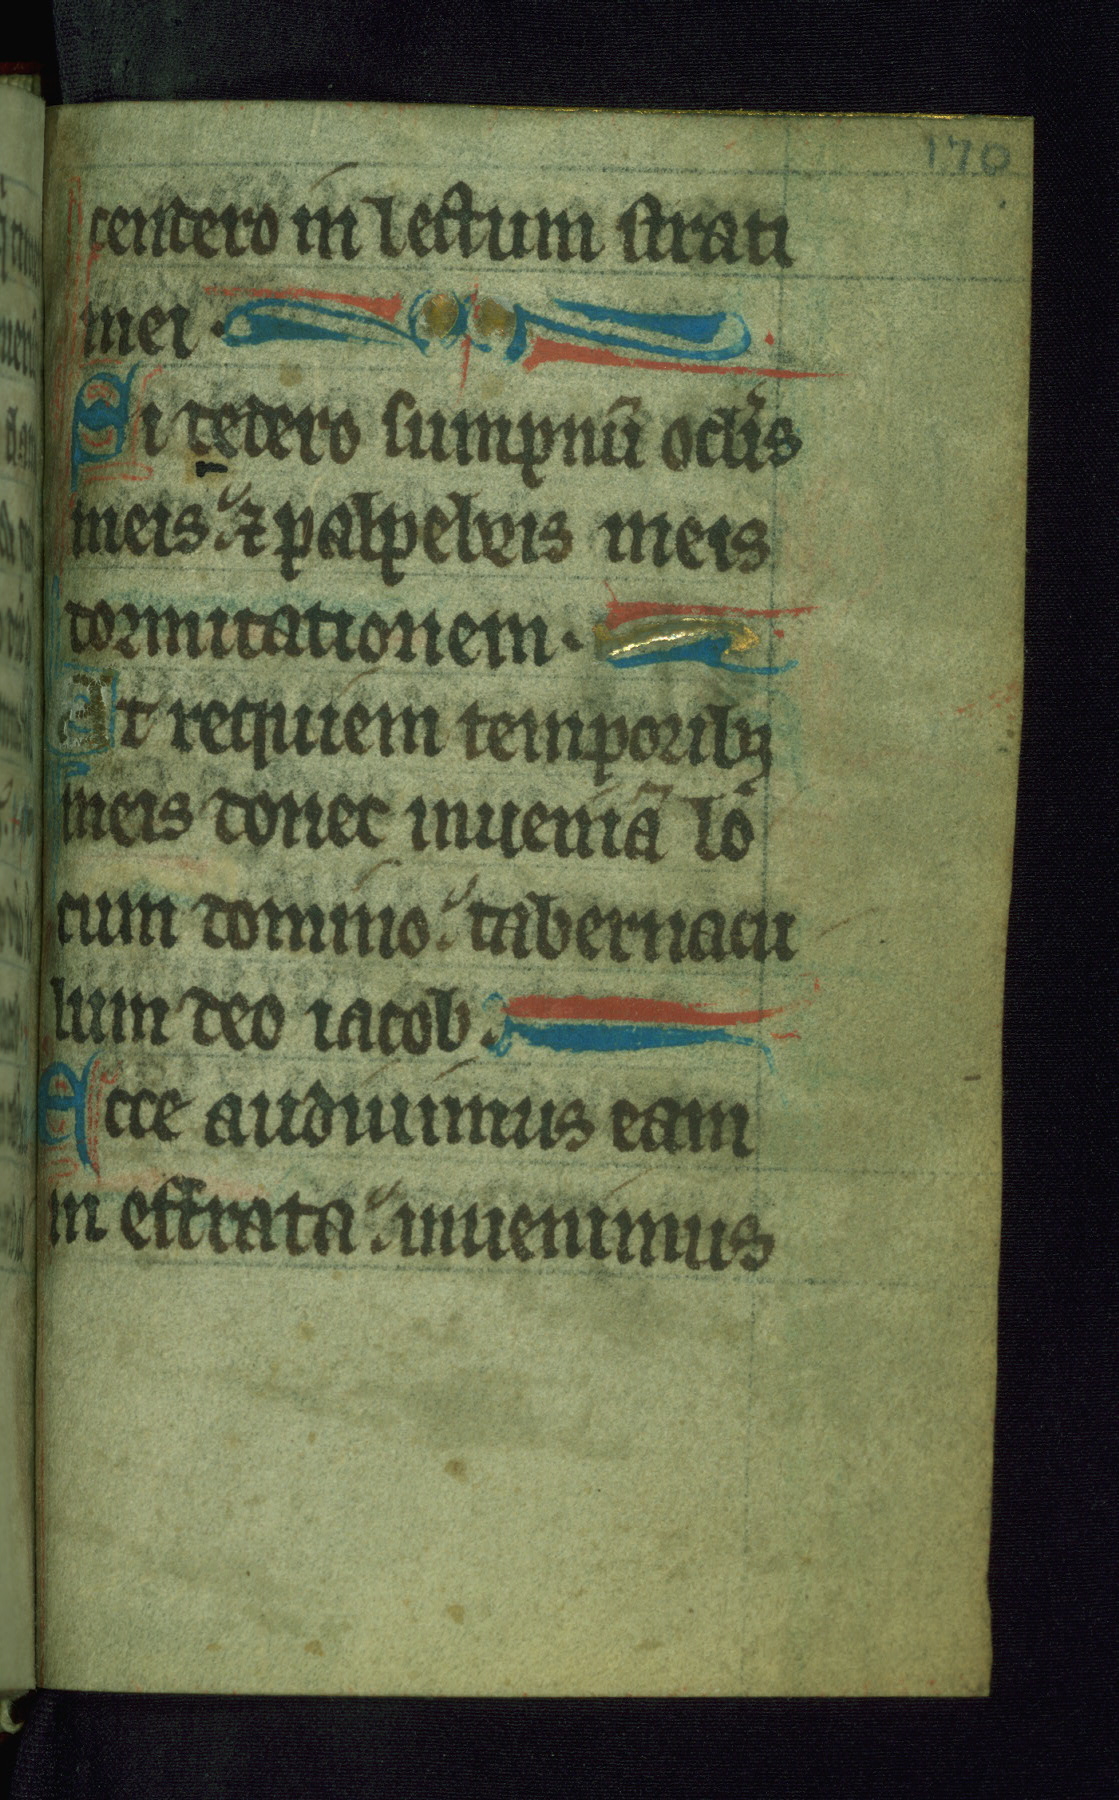 170
cendero in lectum strati
mei .
Si dedero sumpnū oclis
meis ⁊ palpebris meis
dormitationem .
Et requiem temporibꝫ
meis donec inueniā lo
cum domino tabernacu
lum deo iacob .
Ecce audiuimus eam
in effrata inuenimus